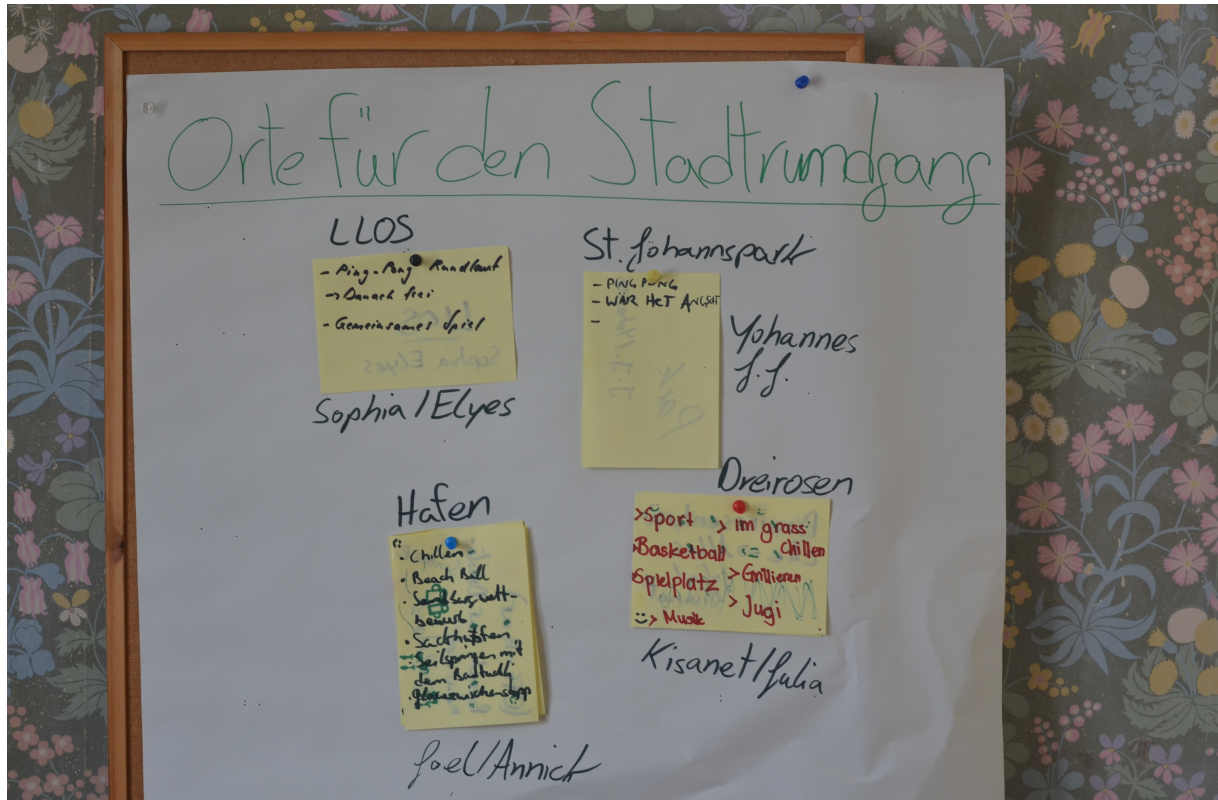 Orte für den Stadtrundgang
LLOS
- Ping-Pong Rundlauf
-> Danach frei
- Gemeinsames Spiel
Sophia / Elyes
St. Johannspark
- PING PONG
- WÄR HET ANGSCHT
-
Yohannes
J.J.
Hafen
• Chillen
• Beach Ball
• Sandburgwett-
bewerb
• Sackhüpfen
• Seilspringen mit
dem
Joel/Annick
Dreirosen
>Sport
>Basketball
>Spielplatz
> Musik
> im grass
chillen
>Grillieren
> Jugi
Kisanet/Julia